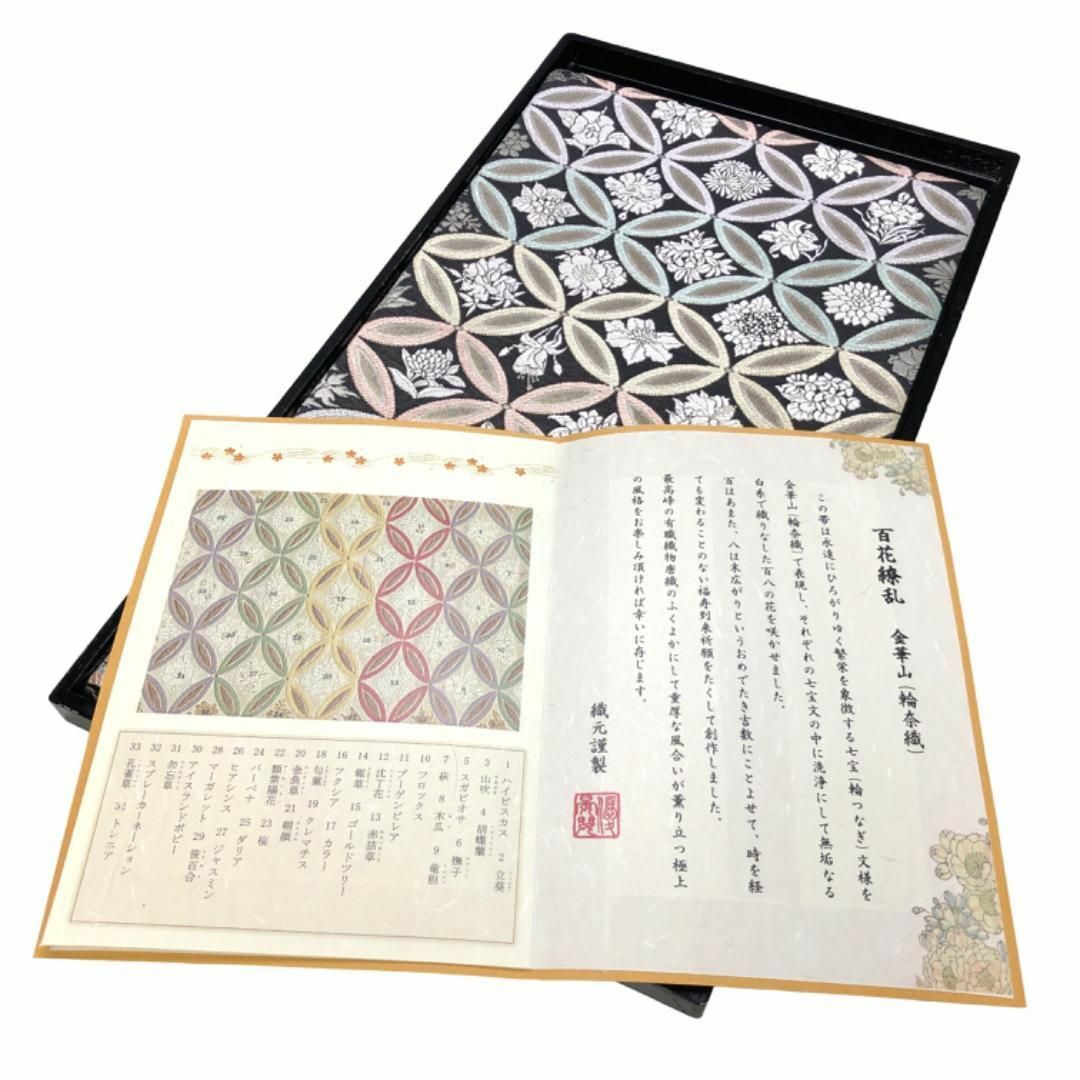 百花繚乱 金華山(輪奈織)
この帯は永遠にひろがりゆく繁栄を象徴する七宝(輪つなぎ)文様を
金華山(輪奈織)で表現し、それぞれの七宝文の中に洗浄にして無垢なる
白糸で織りなした百八の花を咲かせました。
百はあまた、八は末広がりというおめでたき吉数にことよせて、時を経
ても変わることのない福寿到来祈願をたくして創作しました。
最高峰の有職織物唐織のふくよかにして重厚な風合いが薫り立つ極上
の風格をお楽しみ頂ければ幸いに存じます。
織元謹製
1 ハイビスカス 2 立葵
3 山吹 4 胡蝶蘭
5 スガビオサ 6 撫子
7 萩 8 木瓜 9 竜胆
10 フロックス
11 ブーゲンビレア
12 沈丁花 13 赤詰草
14 糯草 15 ゴールドツリー
16 フクシア 17 カラー
18 匂菫 19 クレマチス
20 金魚草 21 朝顔
22 額紫陽花 23 桜
24 バーベナ 25 ダリア
26 ヒアシンス 27 ジャスミン
28 マーガレット 29 笹百合
30 アイスランドポピー
31 勿忘草
32 スプレーカーネーション
33 孔雀草 34 トレニア